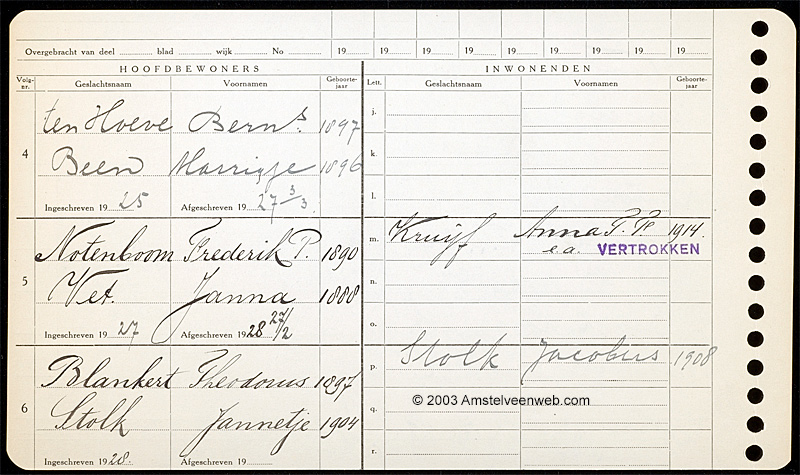 Overgebracht van deel ............ blad ............ wijk ............ No ............ 19 19 19 19 19 19 19 19 19
HOOFDBEWONERS INWONENDEN
Volg-nr. Geslachtsnaam Voornamen Geboorte-jaar Lett. Geslachtsnaam Voornamen Geboorte-jaar
ten Hoeve Berns. 1897 j.
4 Been Marrigje 1896 k.
l.
Ingeschreven 1925 Afgeschreven 1927 3/3
Notenboom Frederik P. 1890 m. Kruijf Anna P. P. 1914.
e.a. VERTROKKEN
5 Vet. Janna 1888 n.
o.
Ingeschreven 1927 Afgeschreven 1928 27/2
Blankert Theodorus 1897 p. Stolk Jacobus 1908
6 Stolk Jannetje 1904 q.
© 2003 Amstelveenweb.com
r.
Ingeschreven 1928. Afgeschreven 19